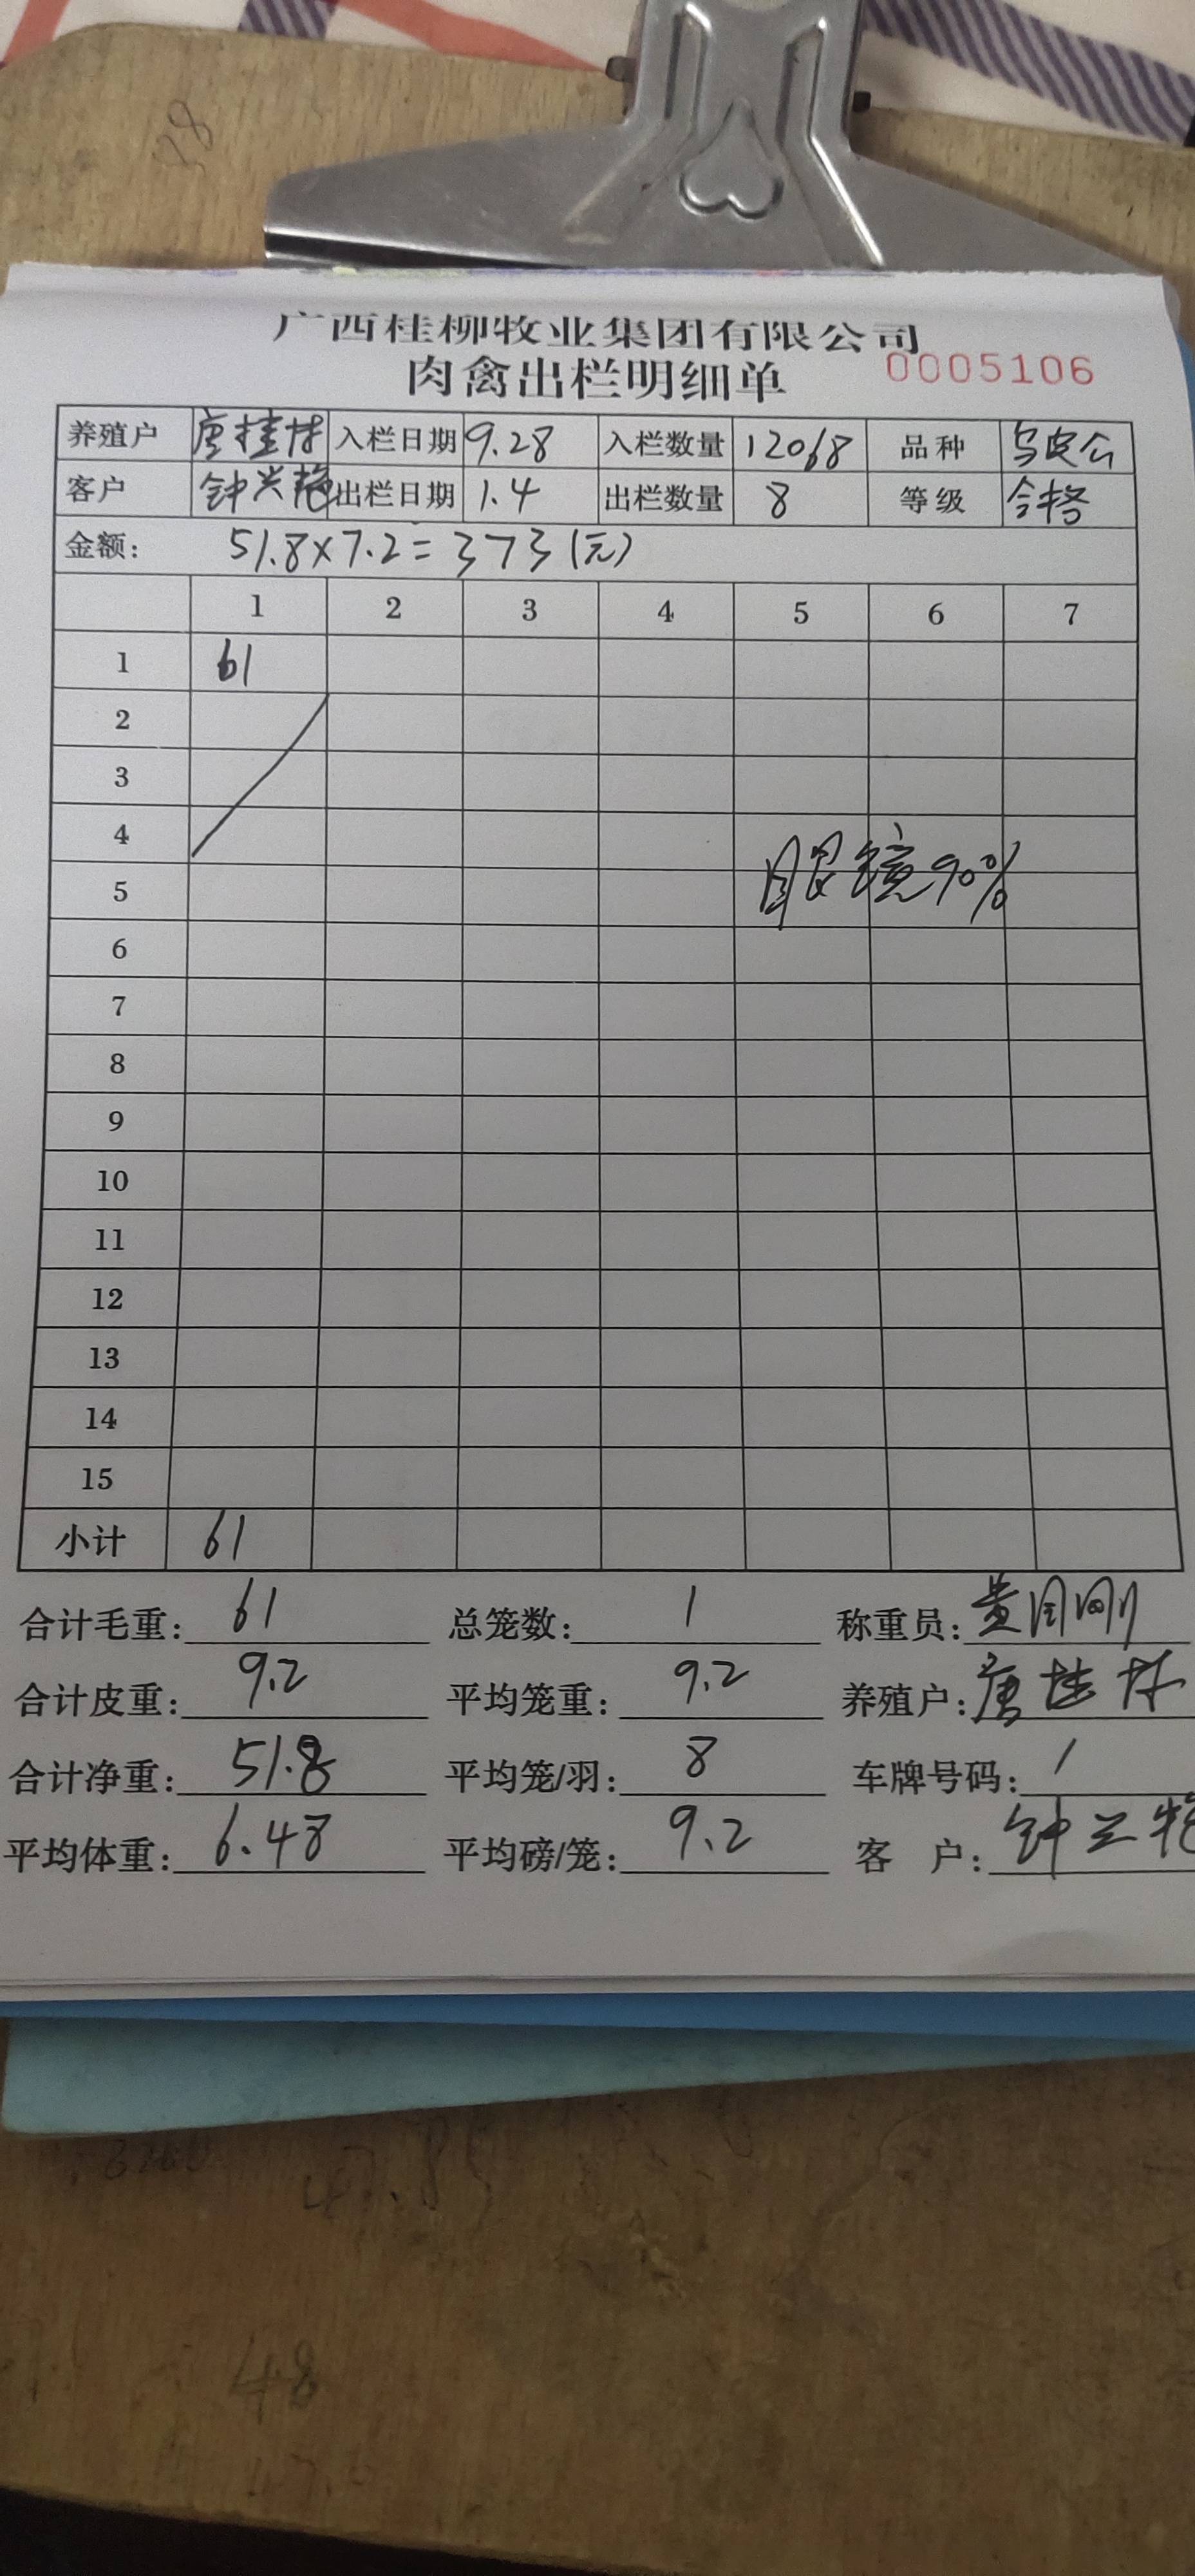 广西桂柳牧业集团有限公司
肉禽出栏明细单 0005106
养殖户 唐桂林 入栏日期 9.28 入栏数量 12068 品种 乌皮公
客户 钟兴艳 出栏日期 1.4 出栏数量 8 等级 合格
金额: 51.8×7.2=373(元)
1 2 3 4 5 6 7
1 61
2
3
4
眼镜90%
5
6
7
8
9
10
11
12
13
14
15
小计 61
合计毛重: 61 总笼数: 1 称重员: 黄国刚
合计皮重: 9.2 平均笼重: 9.2 养殖户: 唐桂林
合计净重: 51.8 平均笼/羽: 8 车牌号码: /
平均体重: 6.48 平均磅/笼: 9.2 客 户: 钟兴艳
48